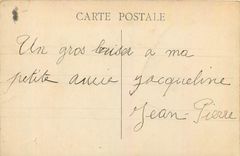 CARTE POSTALE
Un gros baiser a ma
petite amie Jacqueline
Jean-Pierre